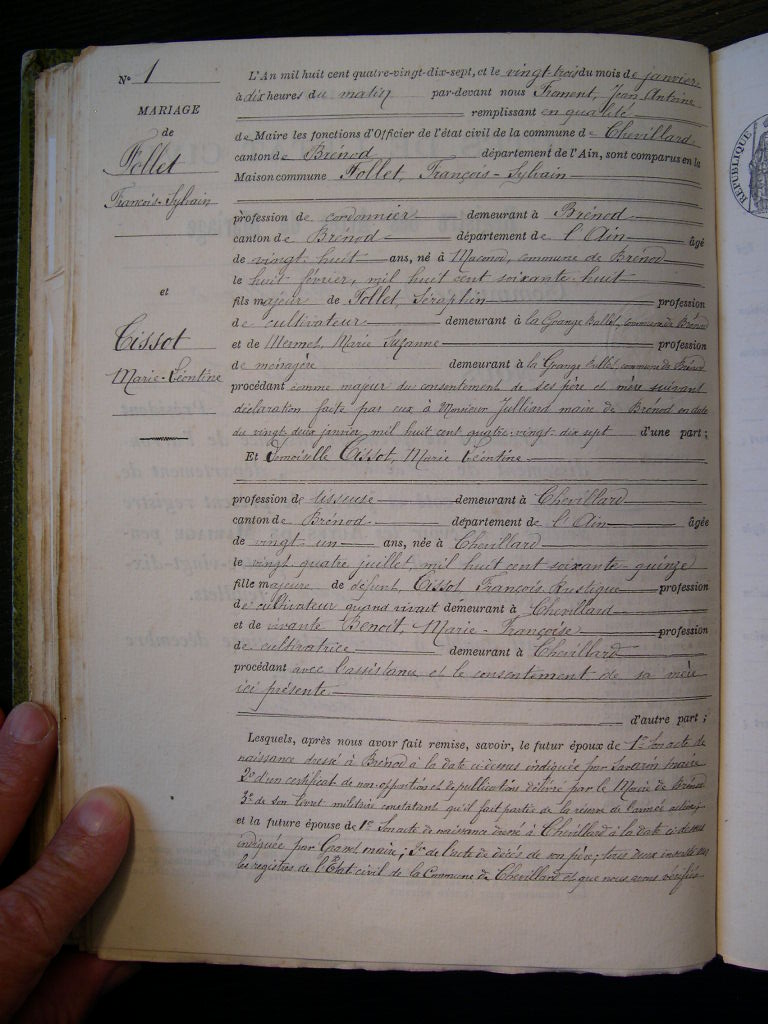 N° 1
MARIAGE
de
Follet
François-Sylvain
et
Tissot
Marie-Léontine
L'An mil huit cent quatre-vingt-dix-sept, et le vingt-trois du mois de janvier
à dix heures du matin par-devant nous Froment, Jean Antoine
remplissant en qualité
de Maire les fonctions d'Officier de l'état civil de la commune de Chevillard
canton de Brénod département de l'Ain, sont comparus en la
Maison commune Follet, François-Sylvain
profession de cordonnier demeurant à Brénod
canton de Brénod département de l'Ain âgé
de vingt-huit ans, né à Maconod, commune de Brénod
le huit février, mil huit cent soixante huit
fils majeur de Follet, Séraphin profession
de cultivateur demeurant à la Grange Ballet, commune de Brénod
et de Mermet, Marie Suzanne profession
de ménagère demeurant à la Grange Ballet, commune de Brénod
procédant comme majeur du consentement de ses père et mère suivant
déclaration faite par eux à Monsieur Julliard maire de Brénod en date
du vingt deux janvier mil huit cent quatre-vingt-dix sept d'une part ;
Et Demoiselle Tissot, Marie Léontine
profession de tisseuse demeurant à Chevillard
canton de Brénod département de l'Ain âgée
de vingt-un ans, née à Chevillard
le vingt quatre juillet, mil huit cent soixante-quinze
fille majeure de défunt, Tissot François Rustique profession
de cultivateur quand vivait demeurant à Chevillard
et de vivante Benoit, Marie-Françoise profession
de cultivatrice demeurant à Chevillard
procédant avec l'assistance et le consentement de sa mère
ici présente
d'autre part ;
Lesquels, après nous avoir fait remise, savoir, le futur époux de 1° Son acte de
naissance dressé à Brénod à la date ci-dessus indiquée par Savarin maire
2° d'un certificat de non-opposition et de publication délivré par le Maire de Brénod
3° de son livret militaire constatant qu'il fait partie de la réserve de l'armée active ;
et la future épouse de 1° Son acte de naissance dressé à Chevillard à la date ci-dessus
indiquée par Grand maire ; 2° de l'acte de décès de son père ; tous deux inscrits sur
les registres de l'État civil de la Commune de Chevillard et que nous avons vérifiés
RÉPUBLIQUE